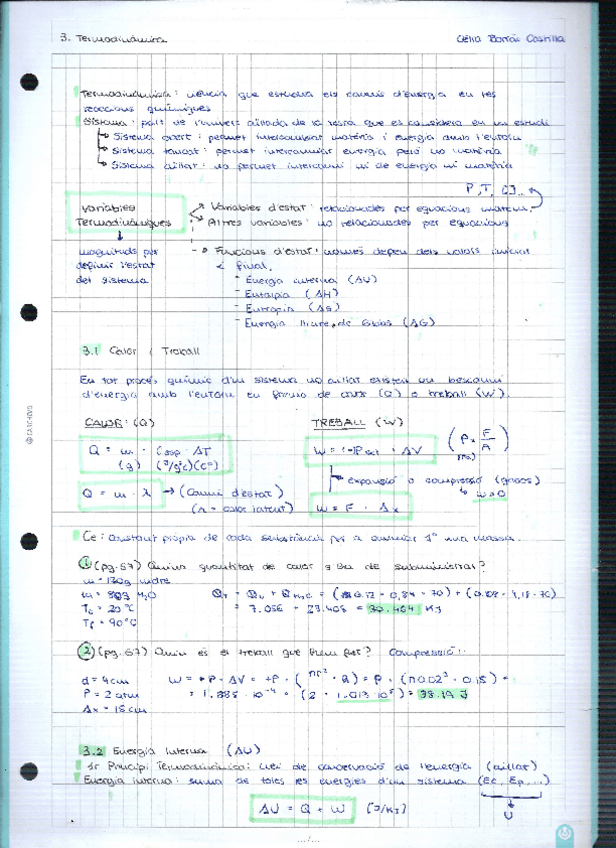 3. Termodinàmica Cèlia Borràs Castilla
Termodinàmica: ciència que estudia els canvis d'energia en les
reaccions químiques
Sistema: part de l'univers aïllada de la resta que es considera en un estudi
Sistema obert: permet intercanviar matèria i energia amb l'entorn
Sistema tancat: permet intercanviar energia però no matèria
Sistema aïllat: no permet intercanvi ni de energia ni matèria
P, T, []..
Variables Termodinàmiques
Variables d'estat: relacionades per equacions matem.
Altres variables: no relacionades per equacions
magnituds per
definir l'estat
del sistema
Funcions d'estat: només depèn dels valors inicial
i final.
- Energia interna (ΔU)
- Entalpia (ΔH)
- Entropia (ΔS)
- Energia lliure de Gibbs (ΔG)
3.1 Calor i Treball
En tot procés químic d'un sistema no aïllat existeix un bescanvi
d'energia amb l'entorn en forma de calor (Q) o treball (W).
CALOR: (Q)
Q = m · Cesp · ΔT
(g) (J/g°C)(C°)
Q = m · λ → (Canvi d'estat)
(λ = calor latent)
TREBALL (W)
W = -Pext · ΔV
(P = F/A)
(Pa)
expansió o compressió (gasos)
W>0
W = F · Δx
Ce: constant pròpia de cada substància per a canviar 1° una massa.
① (pg. 57) Quina quantitat de calor s'ha de subministrar?
m = 120g vidre
m = 80g H2O
Tc = 20°C
Tf = 90°C
QT = Qv + QH2O = (0.12 · 0,84 · 70) + (0.08 · 4,18 · 70)
= 7.056 + 23.408 = 30.464 KJ
② (pg. 67) Quin és el treball que hem fet? Compressió:
d = 4cm
P = 2 atm
Δx = 15cm
W = +P · ΔV = +P · (πr² · l) = P · (π0.02² · 0.15) =
= 1.885 · 10⁻⁴ · (2 · 1.013 · 10⁵) = 38.19 J
3.2 Energia Interna (ΔU)
1r Principi Termodinàmica: Llei de conservació de l'energia (aïllat)
Energia interna: suma de totes les energies d'un sistema (Ec, Ep, ...)
U
ΔU = Q + W [J/KJ]
.../...